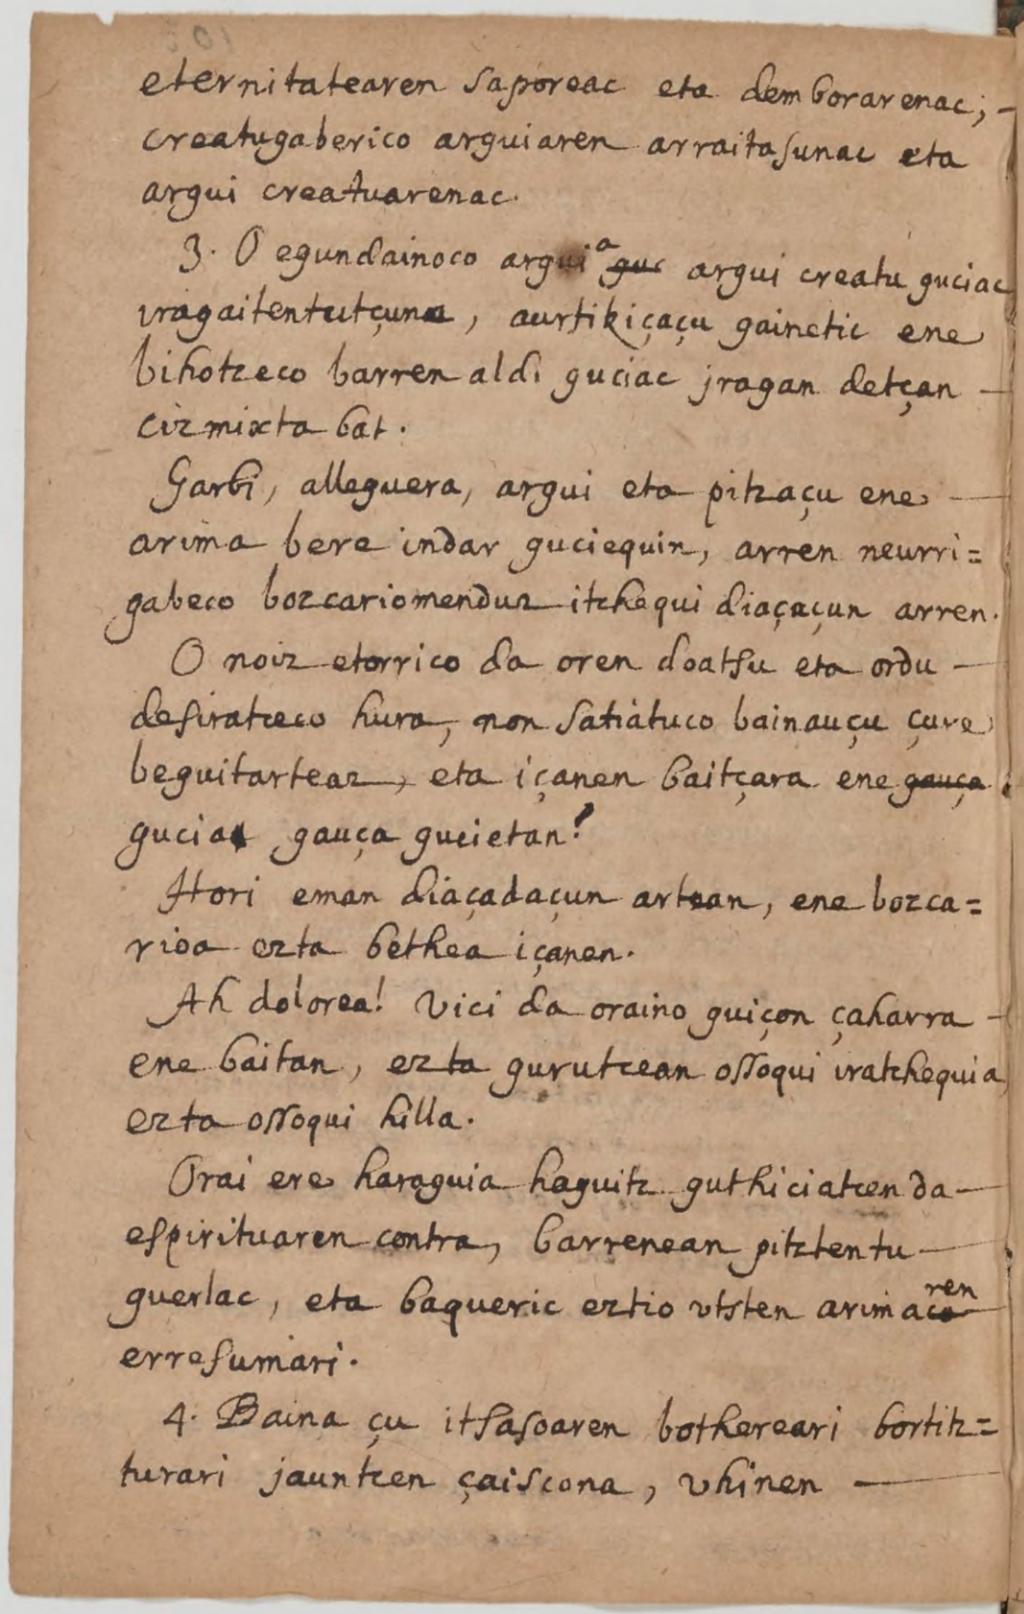 eternitatearen saporeac eta demborarenac;
creatugaberico arguiaren arraitasunac eta
argui creatuarenac.
3. O egundainoco arguia guc argui creatu guciac
iragaitentutçuna, aurtikiçaçu gainetic ene
bihotzeco barren aldi guciac jragan detçan
cizmixta bat.
Garbi, alleguera, argui eta pitzaçu ene
arima bere indar guciequin, arren neurri=
gabeco bozcariomenduz itzhequi diaçaçun arren.
O noiz etorrico da oren doatsu eta ordu
desiratceco hura, non satiátuco bainauçu çure
beguitarteaz, eta içanen baitçara ene gauça
gucia gauça gucietan!
Hori eman diaçadaçun artean, ene bozca=
rioa ezta bethea içanen.
Ah dolorea! Vici da oraino guiçon çaharra
ene baitan, ezta gurutcean ossoqui iratzhequia
ezta ossoqui hilla.
Orai ere haraguia haguitz guthiciatcen da
espirituaren contra, barrenean pitztentu
guerlac, eta baqueric eztio vtsten arimaren
erresumari.
4. Baina çu itsasoaren bothereari bortitz=
turari jauntzen çaiscona, vhinen